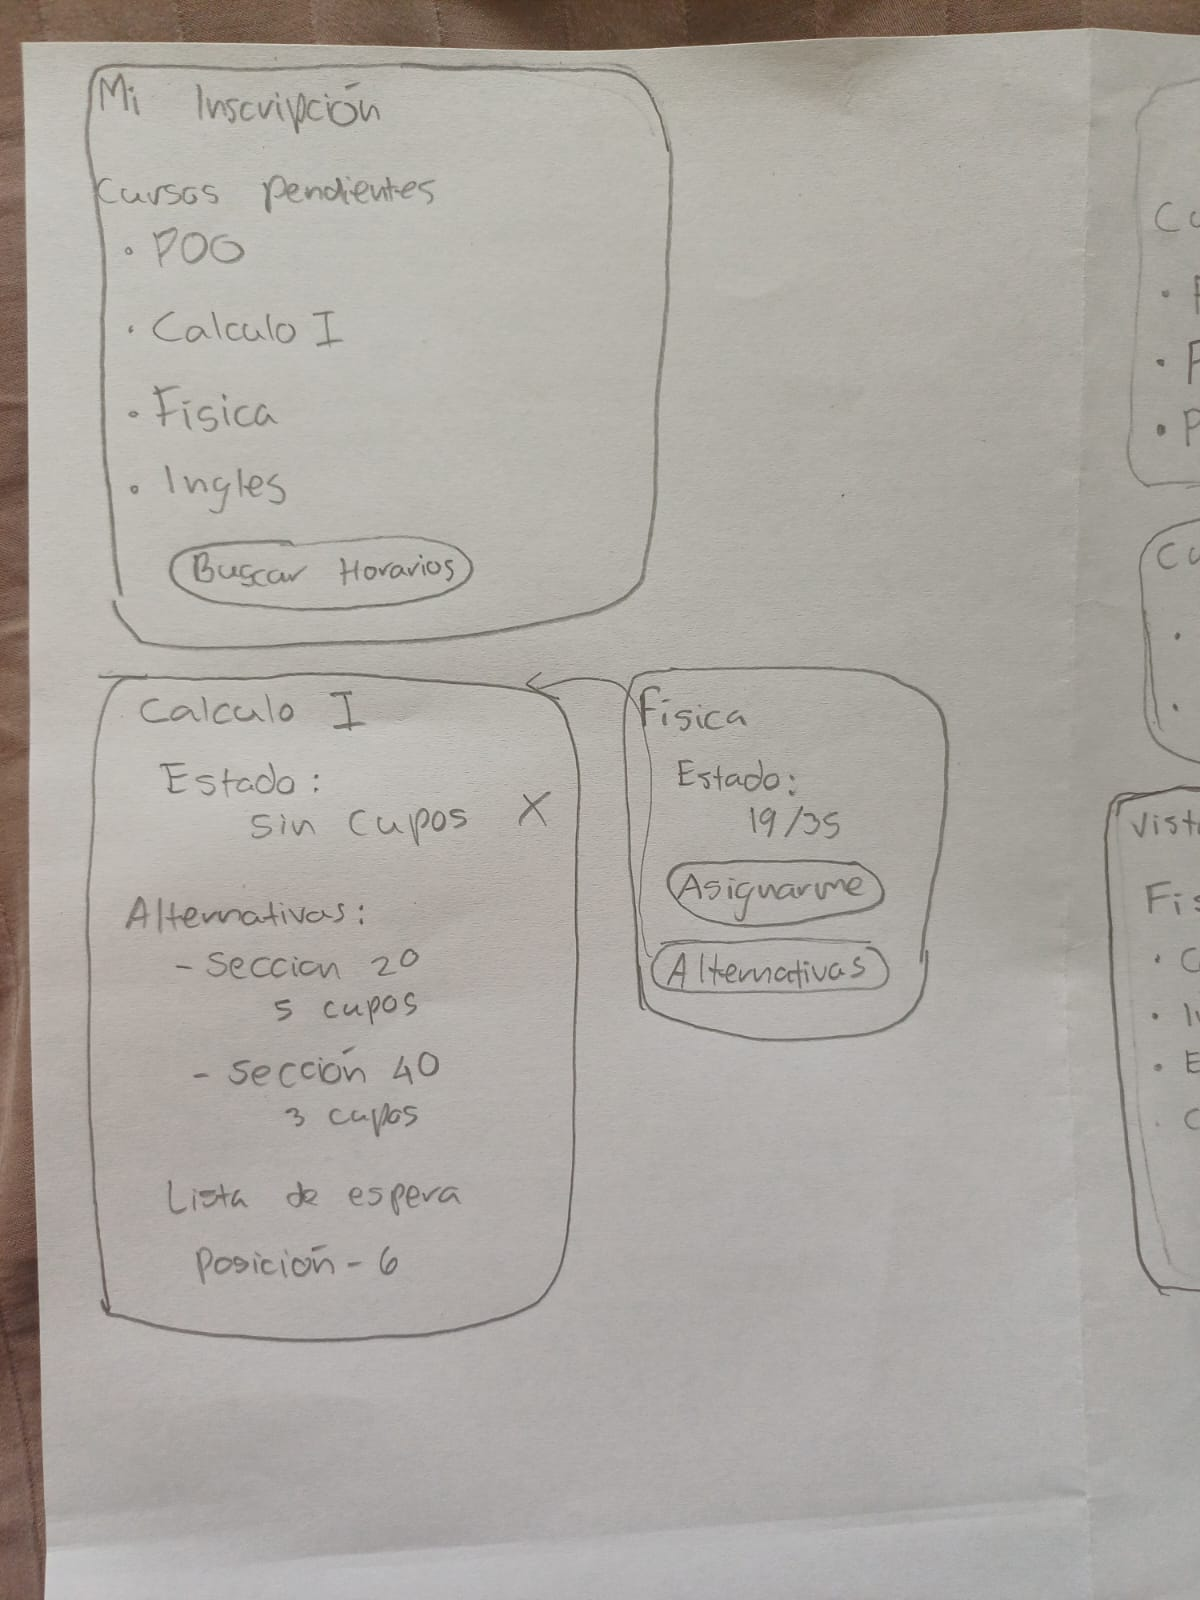 Mi Inscripción
Cursos pendientes
• POO
• Calculo I
• Fisica
• Ingles
Buscar Horarios
Calculo I
Estado:
sin cupos X
Alternativas:
- Seccion 20
5 cupos
- Sección 40
3 cupos
Lista de espera
Posición - 6
Fisica
Estado:
19/35
Asignarme
Alternativas